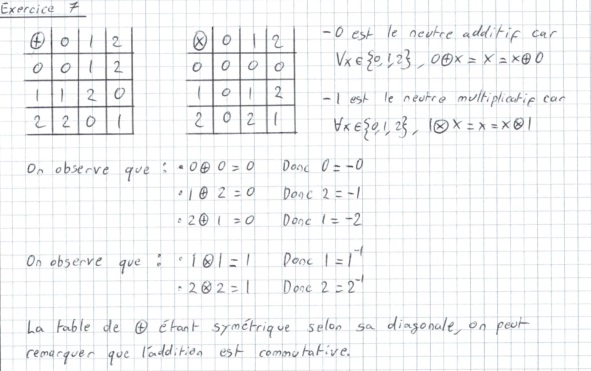 Exercice 7
⊕ 0 1 2
0 0 1 2
1 1 2 0
2 2 0 1
⊗ 0 1 2
0 0 0 0
1 0 1 2
2 0 2 1
-0 est le neutre additif car
∀x∈{0,1,2}, 0⊕x = x = x⊕0
-1 est le neutre multiplicatif car
∀x∈{0,1,2}, 1⊗x = x = x⊗1
On observe que : • 0⊕0=0 Donc 0=-0
• 1⊕2=0 Donc 2=-1
• 2⊕1=0 Donc 1=-2
On observe que : • 1⊗1=1 Donc 1=1⁻¹
• 2⊗2=1 Donc 2=2⁻¹
La table de ⊕ étant symétrique selon sa diagonale, on peut
remarquer que l'addition est commutative.